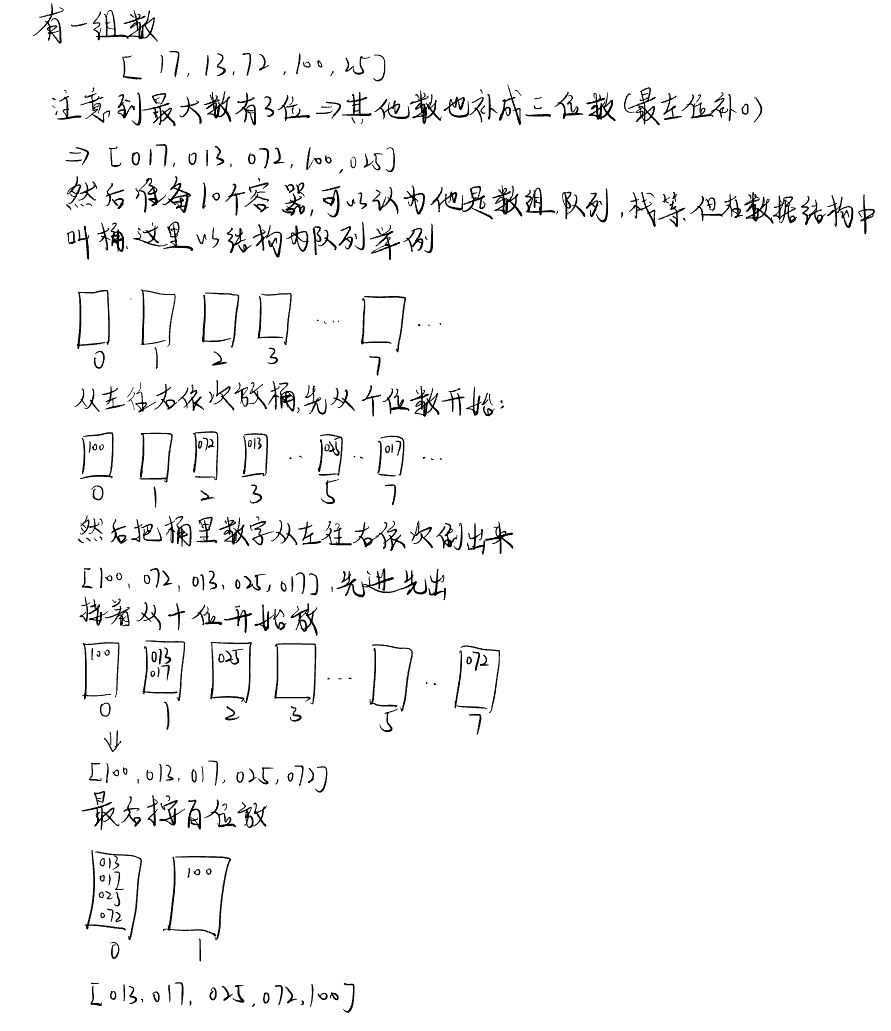 有一组数
[17, 13, 72, 100, 25]
注意到最大数有3位 ⇒ 其他数也补成三位数(最左位补0)
⇒ [017, 013, 072, 100, 025]
然后准备10个容器,可以认为他是数组,队列,栈等,但在数据结构中
叫桶,这里以结构为队列举例
0 1 2 3 .... 7 ...
从左往右依次放桶,先从个位数开始:
100 072 013 025 017
0 1 2 3 .. 5 .. 7 ...
然后把桶里数字从左往右依次倒出来
[100, 072, 013, 025, 017],先进先出
接着从十位开始放
100 013 025 072
017
0 1 2 3 ... 5 .. 7
⇓
[100, 013, 017, 025, 072]
最后按百位放
013 100
017
025
072
0 1
[013, 017, 025, 072, 100]